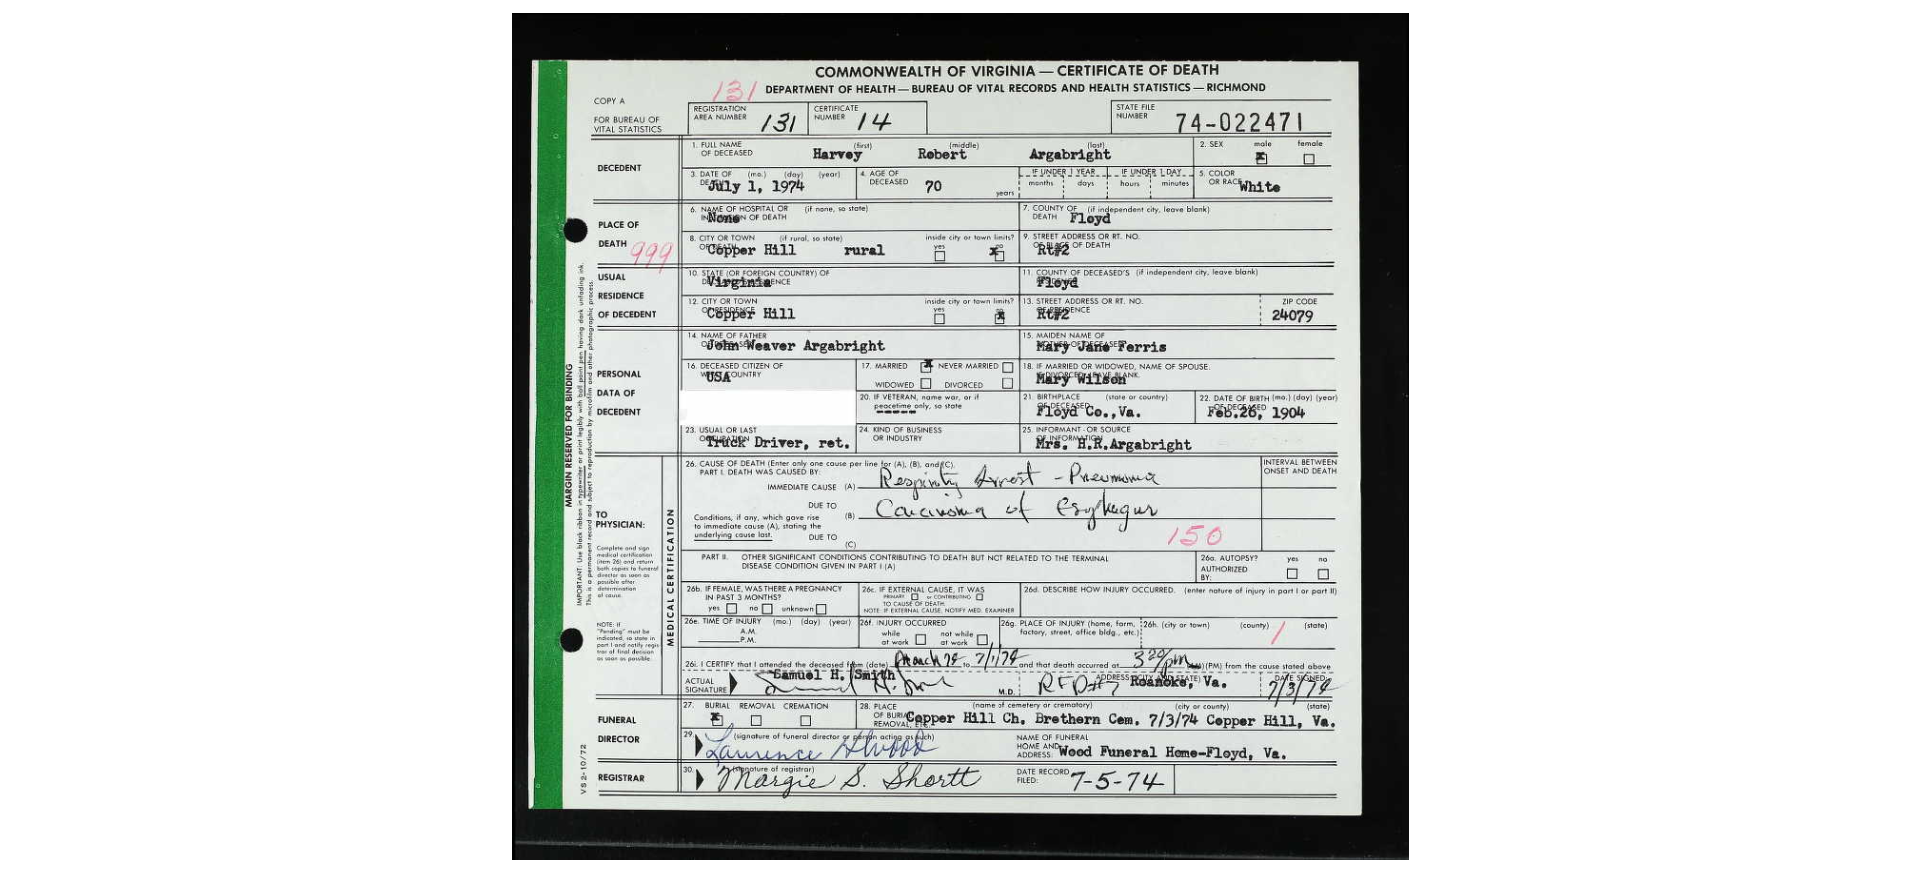 COMMONWEALTH OF VIRGINIA — CERTIFICATE OF DEATH
131 DEPARTMENT OF HEALTH — BUREAU OF VITAL RECORDS AND HEALTH STATISTICS — RICHMOND
COPY A
FOR BUREAU OF VITAL STATISTICS
REGISTRATION AREA NUMBER 131 CERTIFICATE NUMBER 14 STATE FILE NUMBER 74-022471
DECEDENT
1. FULL NAME OF DECEASED (first) Harvey (middle) Robert (last) Argabright 2. SEX male x female
3. DATE OF (mo.) (day) (year) July 1, 1974 4. AGE OF DECEASED 70 years IF UNDER 1 YEAR months days IF UNDER 1 DAY hours minutes 5. COLOR OR RACE White
PLACE OF DEATH 999
6. NAME OF HOSPITAL OR (if none, so state) OF DEATH None 7. COUNTY OF DEATH (if independent city, leave blank) Floyd
8. CITY OR TOWN (if rural, so state) Copper Hill rural inside city or town limits? yes no x 9. STREET ADDRESS OR RT. NO. OF DEATH Rt#2
USUAL RESIDENCE OF DECEDENT
10. STATE (OR FOREIGN COUNTRY) OF Virginia 11. COUNTY OF DECEASED'S (if independent city, leave blank) Floyd
12. CITY OR TOWN Copper Hill inside city or town limits? yes no x 13. STREET ADDRESS OR RT. NO. Rt#2 ZIP CODE 24079
PERSONAL DATA OF DECEDENT
14. NAME OF FATHER John Weaver Argabright 15. MAIDEN NAME OF Mary Jane Ferris
16. DECEASED CITIZEN OF COUNTRY USA 17. MARRIED x NEVER MARRIED WIDOWED DIVORCED 18. IF MARRIED OR WIDOWED, NAME OF SPOUSE. Mary Wilson
20. IF VETERAN, name war, or if peacetime only, so state ----- 21. BIRTHPLACE (state or country) OF DECEASED Floyd Co.,Va. 22. DATE OF BIRTH (mo.) (day) (year) Feb.26, 1904
23. USUAL OR LAST Truck Driver, ret. 24. KIND OF BUSINESS OR INDUSTRY 25. INFORMANT OR SOURCE Mrs. H.R.Argabright
TO PHYSICIAN:
Complete and sign medical certification (item 26) and return both copies to funeral director as soon as possible after determination of cause.
NOTE: If "Pending" must be indicated, so state in part I and notify registrar of final decision as soon as possible.
MEDICAL CERTIFICATION
26. CAUSE OF DEATH (Enter only one cause per line for (A), (B), and (C). INTERVAL BETWEEN ONSET AND DEATH
PART I. DEATH WAS CAUSED BY:
IMMEDIATE CAUSE (A) Respiratory Arrest - Pneumonia
DUE TO
(B) Carcinoma of Esophagus
Conditions, if any, which gave rise to immediate cause (A), stating the underlying cause last.
DUE TO (C) 150
PART II. OTHER SIGNIFICANT CONDITIONS CONTRIBUTING TO DEATH BUT NOT RELATED TO THE TERMINAL DISEASE CONDITION GIVEN IN PART I (A) 26a. AUTOPSY? yes no AUTHORIZED BY:
26b. IF FEMALE, WAS THERE A PREGNANCY IN PAST 3 MONTHS? yes no unknown 26c. IF EXTERNAL CAUSE, IT WAS PRIMARY or CONTRIBUTING TO CAUSE OF DEATH. NOTE: IF EXTERNAL CAUSE, NOTIFY MED. EXAMINER 26d. DESCRIBE HOW INJURY OCCURRED. (enter nature of injury in part I or part II)
26e. TIME OF INJURY (mo.) (day) (year) A.M. P.M. 26f. INJURY OCCURRED while at work not while at work 26g. PLACE OF INJURY (home, farm, factory, street, office bldg., etc.) 26h. (city or town) (county) 1 (state)
26i. I CERTIFY that I attended the deceased from (date) March 74 to 7/1/74 and that death occurred at 3 20/pm (PM) from the cause stated above
ACTUAL SIGNATURE Samuel H. Smith M.D. RFD#7 Roanoke, Va. DATE SIGNED: 7/3/74
FUNERAL DIRECTOR
27. BURIAL x REMOVAL CREMATION 28. PLACE OF BURIAL REMOVAL, ETC. (name of cemetery or crematory) (city or county) (state) Copper Hill Ch. Brethern Cem. 7/3/74 Copper Hill, Va.
29. (signature of funeral director or person acting as such) Laurence NAME OF FUNERAL HOME AND ADDRESS: Wood Funeral Home-Floyd, Va.
REGISTRAR
30. (signature of registrar) Margie S. Shortt DATE RECORD FILED: 7-5-74
MARGIN RESERVED FOR BINDING
VS 2-10/72